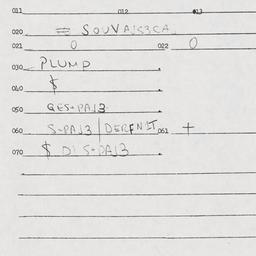 011 012 013
020 = SOUVAISSCA
021 0 022 0
030 PLUMP
040 $
050 QES+PAJ3
060 S-PAJ3 | DERENIT 061 +
070 $ DIS+PAJ3